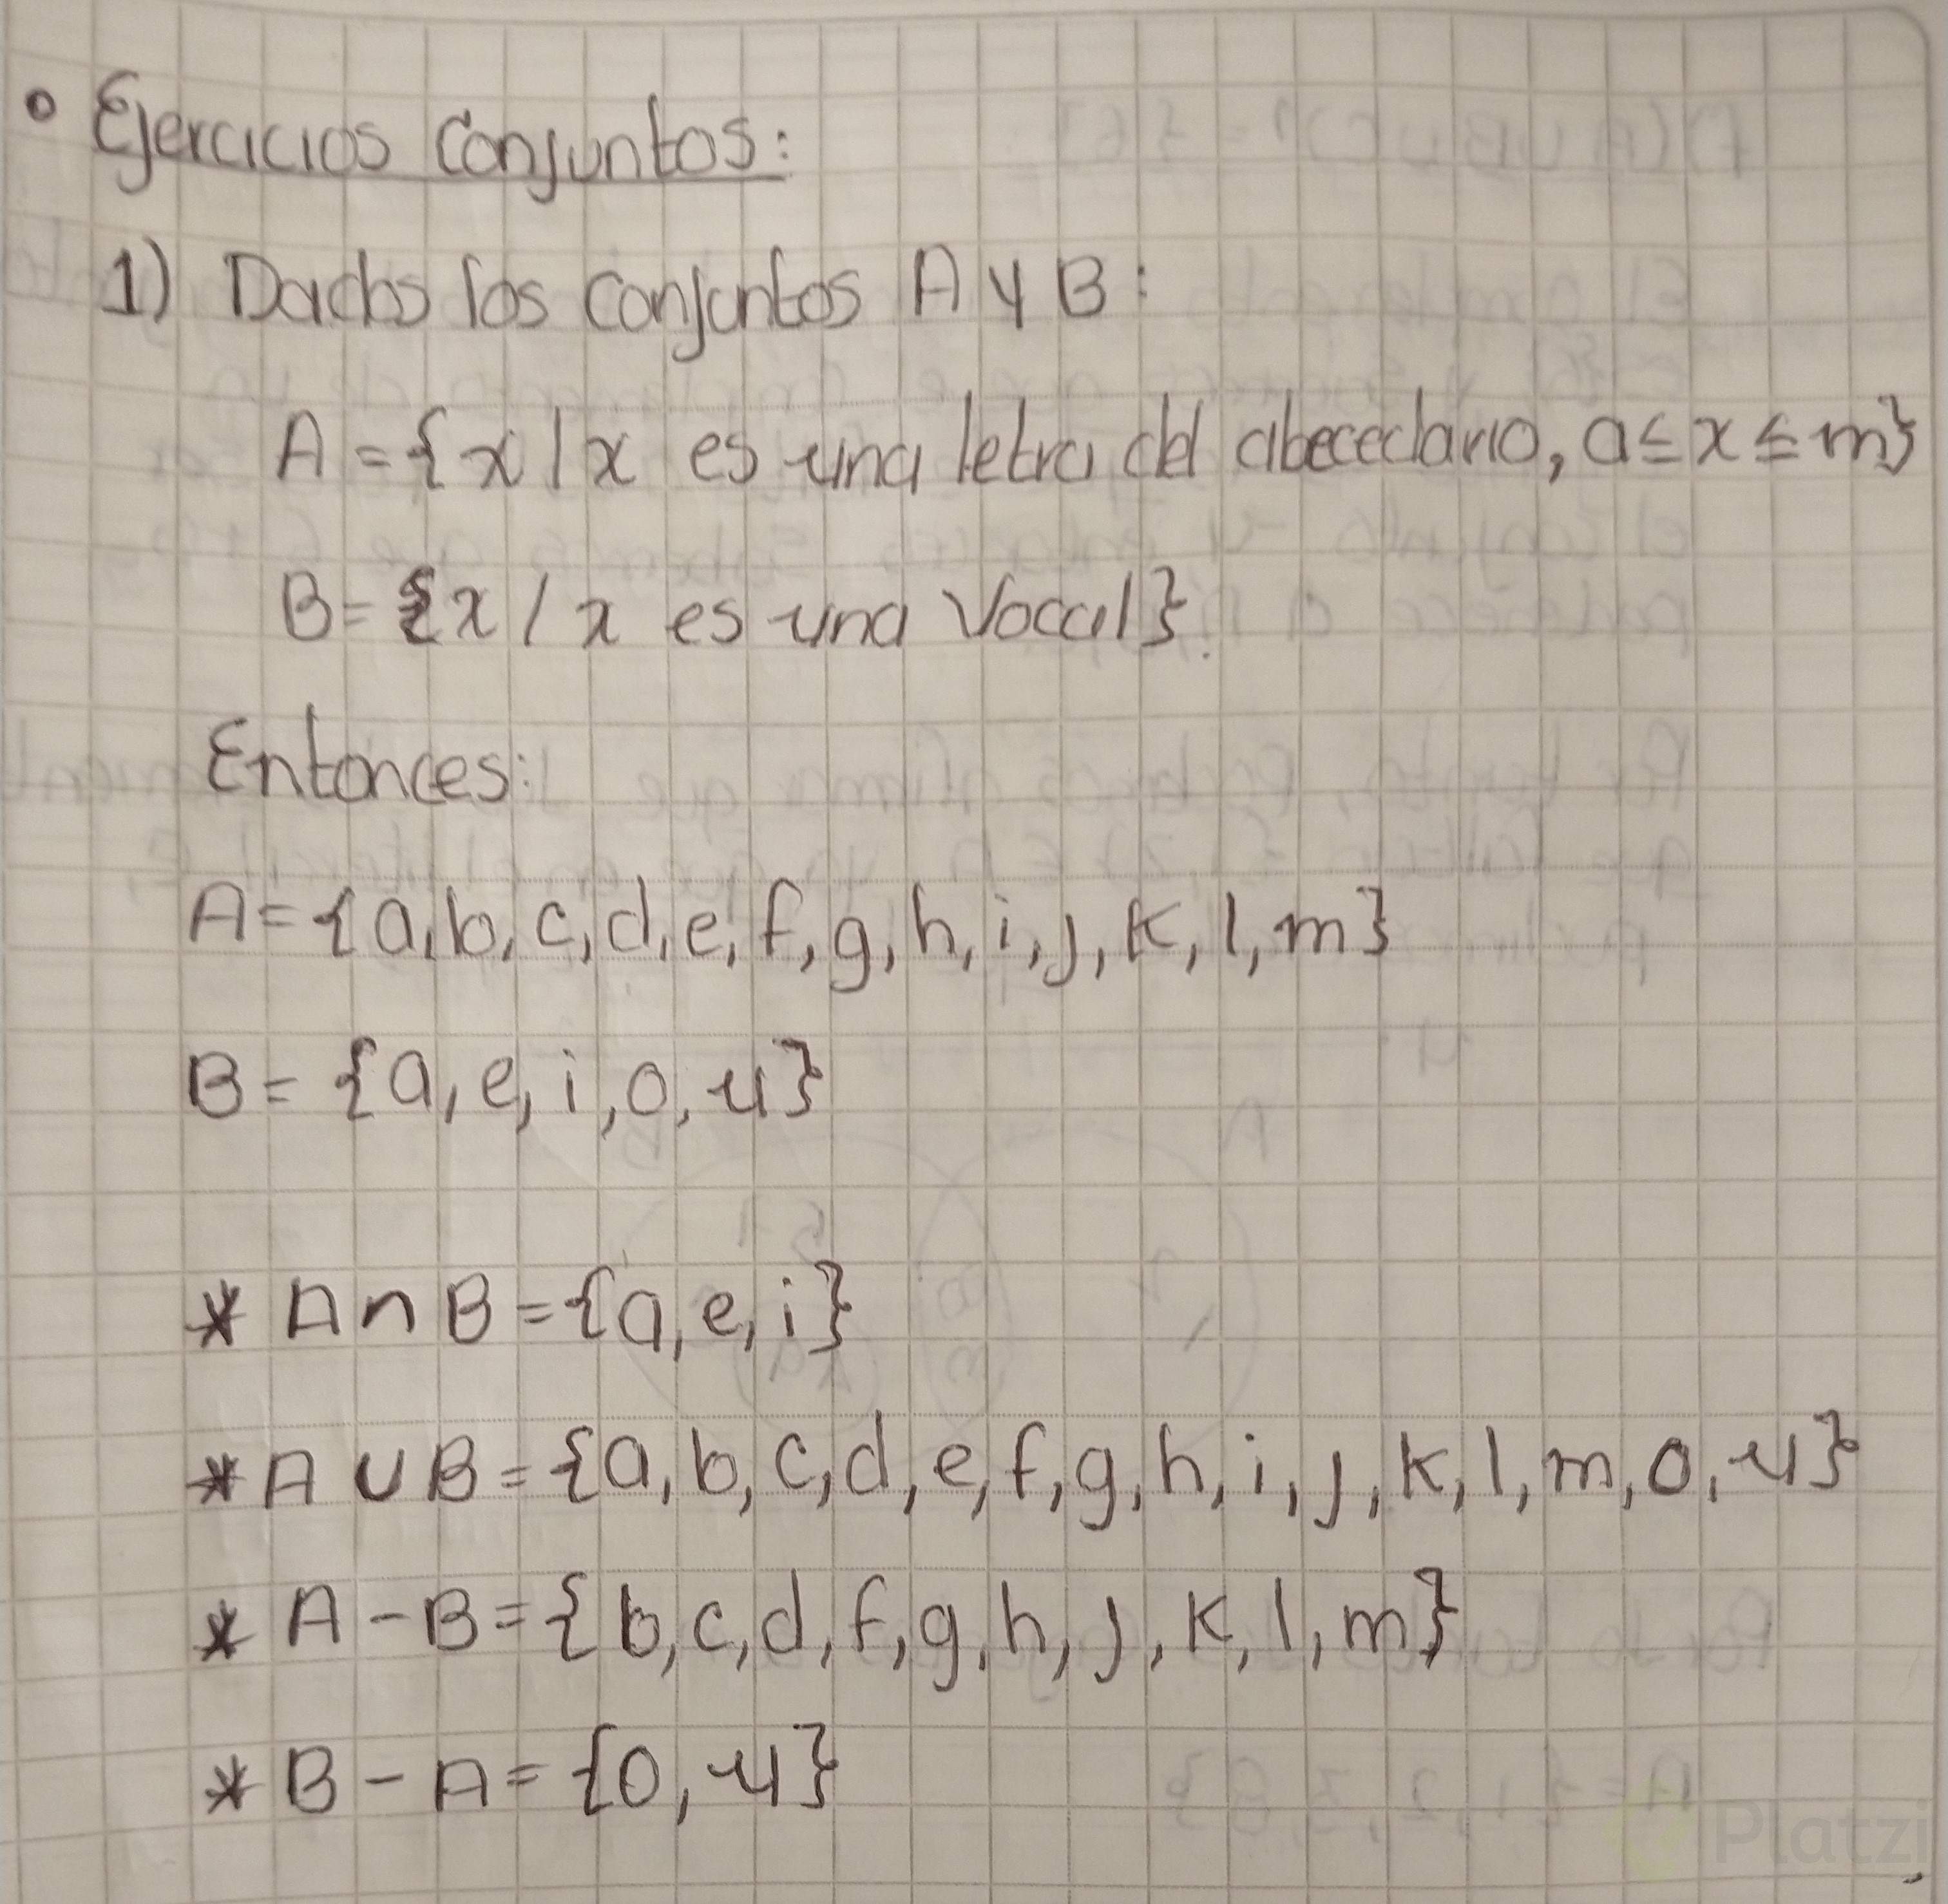 • Ejercicios Conjuntos:
1) Dados los conjuntos A y B:
A = {x / x es una letra del abecedario, a ≤ x ≤ m}
B = {x / x es una Vocal}.
Entonces:
A = {a, b, c, d, e, f, g, h, i, j, k, l, m}
B = {a, e, i, o, u}
* A ∩ B = {a, e, i}
* A ∪ B = {a, b, c, d, e, f, g, h, i, j, k, l, m, o, u}
* A - B = {b, c, d, f, g, h, j, k, l, m}
* B - A = {o, u}
Platzi